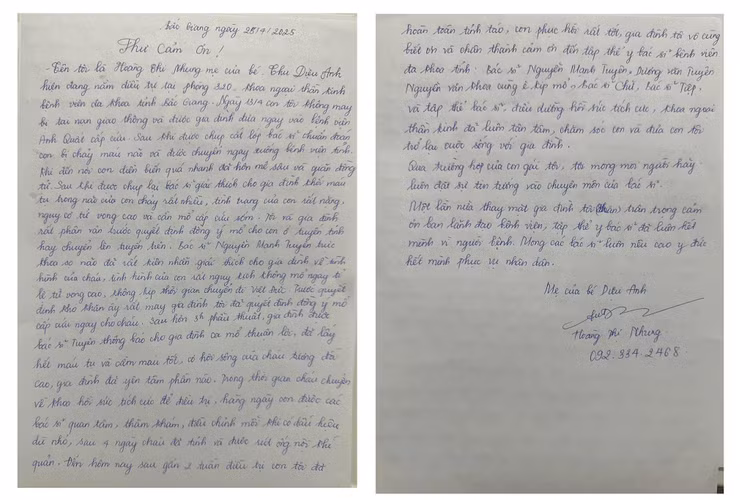 Bắc Giang ngày 25/4/2025
Thư Cảm Ơn!
- Tên tôi là Hoàng Thị Nhung mẹ của bé Thu Diệu Anh
hiện đang nằm điều trị tại phòng 320, khoa ngoại thần kinh
bệnh viện đa khoa tỉnh Bắc Giang. Ngày 13/4 con tôi không may
bị tai nạn giao thông và được gia đình đưa ngay vào bệnh viện
Anh Quất cấp cứu. Sau khi được chụp cắt lớp bác sĩ chuẩn đoán
con bị chảy máu não và được chuyển ngay xuống bệnh viện tỉnh.
Khi đến nơi con diễn biến quá nhanh đã hôn mê sâu và giãn đồng
tử. Sau khi được chụp lại bác sĩ giải thích cho gia đình khối máu
tụ trong não của con chảy rất nhiều, tình trạng của con rất nặng,
nguy cơ tử vong cao và cần mổ cấp cứu sớm. Tôi và gia đình
rất phân vân trước quyết định đồng ý mổ cho con ở tuyến tỉnh
hay chuyển lên tuyến trên. Bác sĩ Nguyễn Mạnh Tuyên trực
khoa sọ não đã rất kiên nhẫn giải thích cho gia đình về tình
hình của cháu, tình hình của con rất nguy kịch không mổ ngay tỉ
lệ tử vong cao, không kịp thời gian chuyển đi Việt Đức. Trước quyết
định khó khăn ấy rất may gia đình tôi đã quyết định đồng ý mổ
cấp cứu ngay cho cháu. Sau hơn 5h phẫu thuật, gia đình được
bác sĩ Tuyên thông báo cho gia đình ca mổ thuận lợi, đã lấy
hết máu tụ và cầm máu tốt, cơ hội sống của cháu tương đối
cao, gia đình đã yên tâm phần nào. Trong thời gian cháu chuyển
về khoa hồi sức tích cực để điều trị, hàng ngày con được các
bác sĩ quan tâm, thăm khám, điều chỉnh mỗi khi có dấu hiệu
dù nhỏ, sau 4 ngày cháu đã tỉnh và được rút ống nội khí
quản. Đến hôm nay sau gần 2 tuần điều trị con tôi đã
hoàn toàn tỉnh táo, con phục hồi rất tốt, gia đình tôi vô cùng
biết ơn và chân thành cảm ơn đến tập thể y bác sĩ bệnh viện
đa khoa tỉnh. Bác sĩ Nguyễn Mạnh Tuyên, Dương Văn Tuyên
Nguyễn Văn Khoa cùng ê kíp mổ, bác sĩ Chủ, bác sĩ Tiệp,
và tập thể bác sĩ, điều dưỡng hồi sức tích cực, khoa ngoại
thần kinh đã luôn tận tâm, chăm sóc con và đưa con tôi
trở lại cuộc sống với gia đình.
Qua trường hợp của con gái tôi, tôi mong mọi người hãy
luôn đặt sự tin tưởng vào chuyên môn của bác sĩ.
Một lần nữa thay mặt gia đình tôi trân trọng cảm
ơn ban lãnh đạo bệnh viện, tập thể y bác sĩ đã luôn hết
mình vì người bệnh. Mong các bác sĩ luôn nêu cao y đức
hết mình phục vụ nhân dân.
Mẹ của bé Diệu Anh
Hoàng Thị Nhung
092.334.2468